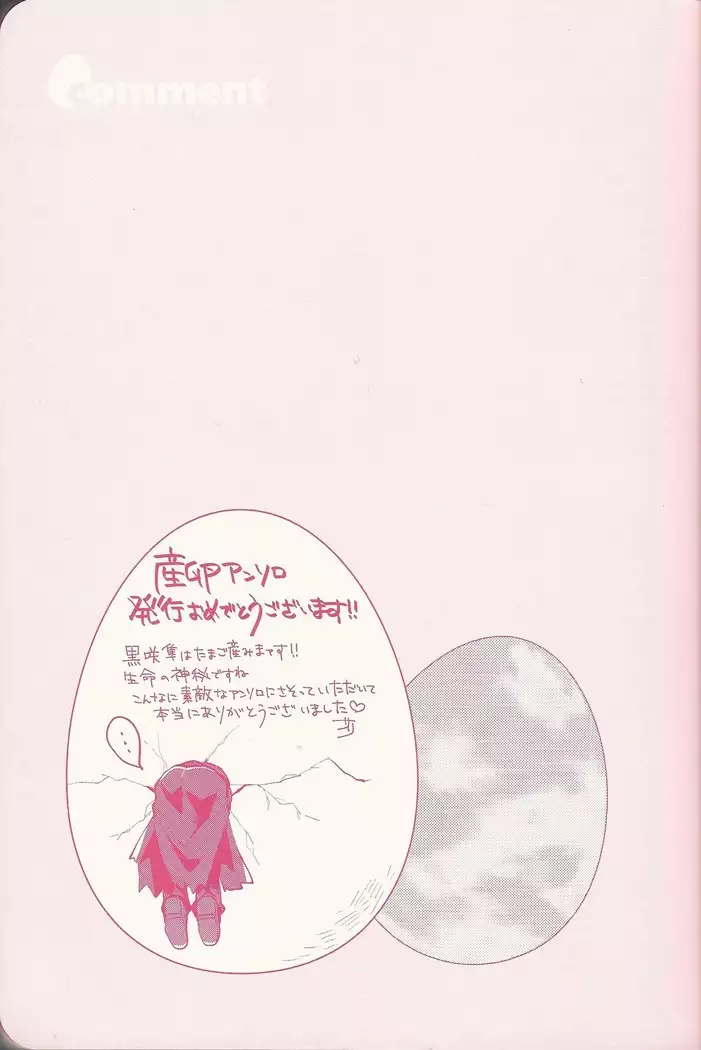 comment
産卵アンソロ
発行おめでとうございます!!
黒咲隼はたまご産みまです!!
生命の神秘ですね
こんなに素敵なアンソロにさそっていただいて
本当にありがとうございました♡
...